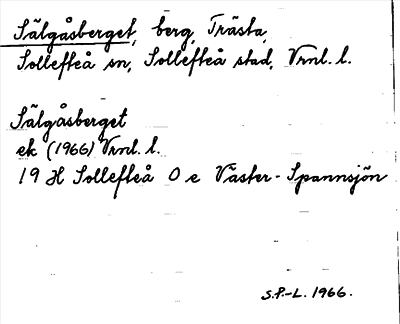 Sälgåsberget, berg, Trästa,
Sollefteå sn, Sollefteå stad, Vrnl. l.
Sälgåsberget
ek (1966) Vrnl. l.
19 H Sollefteå O e Väster-Spannsjön
S.P.-L. 1966.